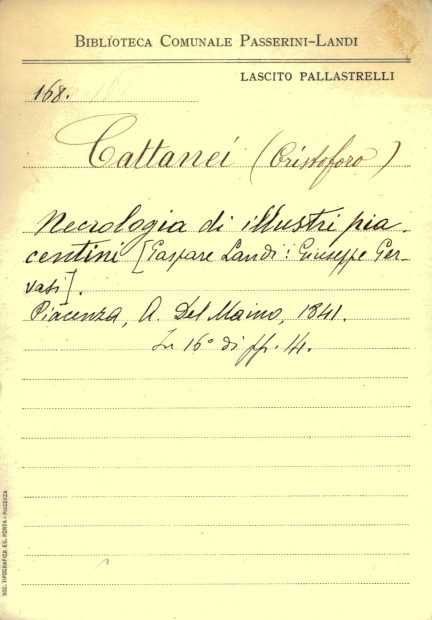 BIBLIOTECA COMUNALE PASSERINI-LANDI
LASCITO PALLASTRELLI
168.
Cattanei (Cristoforo)
Necrologia di illustri pia-
centini [Gaspare Landi: Giuseppe Ger-
vasi].
Piacenza, A. Del Maino, 1841.
In 16° di pp. 14.
SOC. TIPOGRAFICA ED. PORTA - PIACENZA